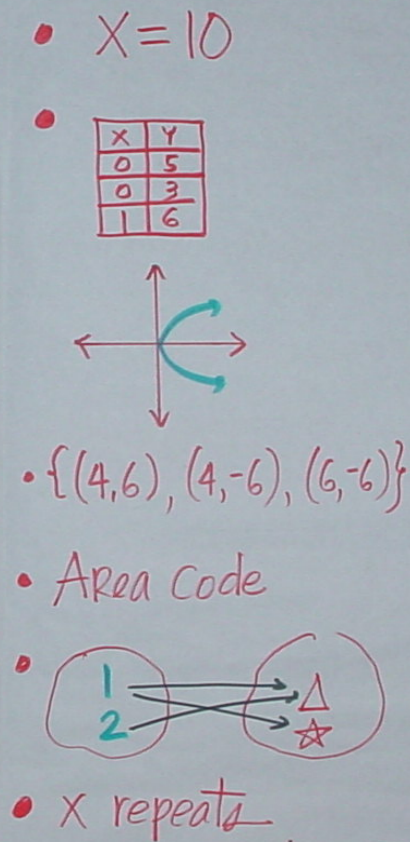 • X = 10
•
X Y
0 5
0 3
1 6
• {(4,6), (4,-6), (6,-6)}
• Area Code
•
1
2
• x repeats